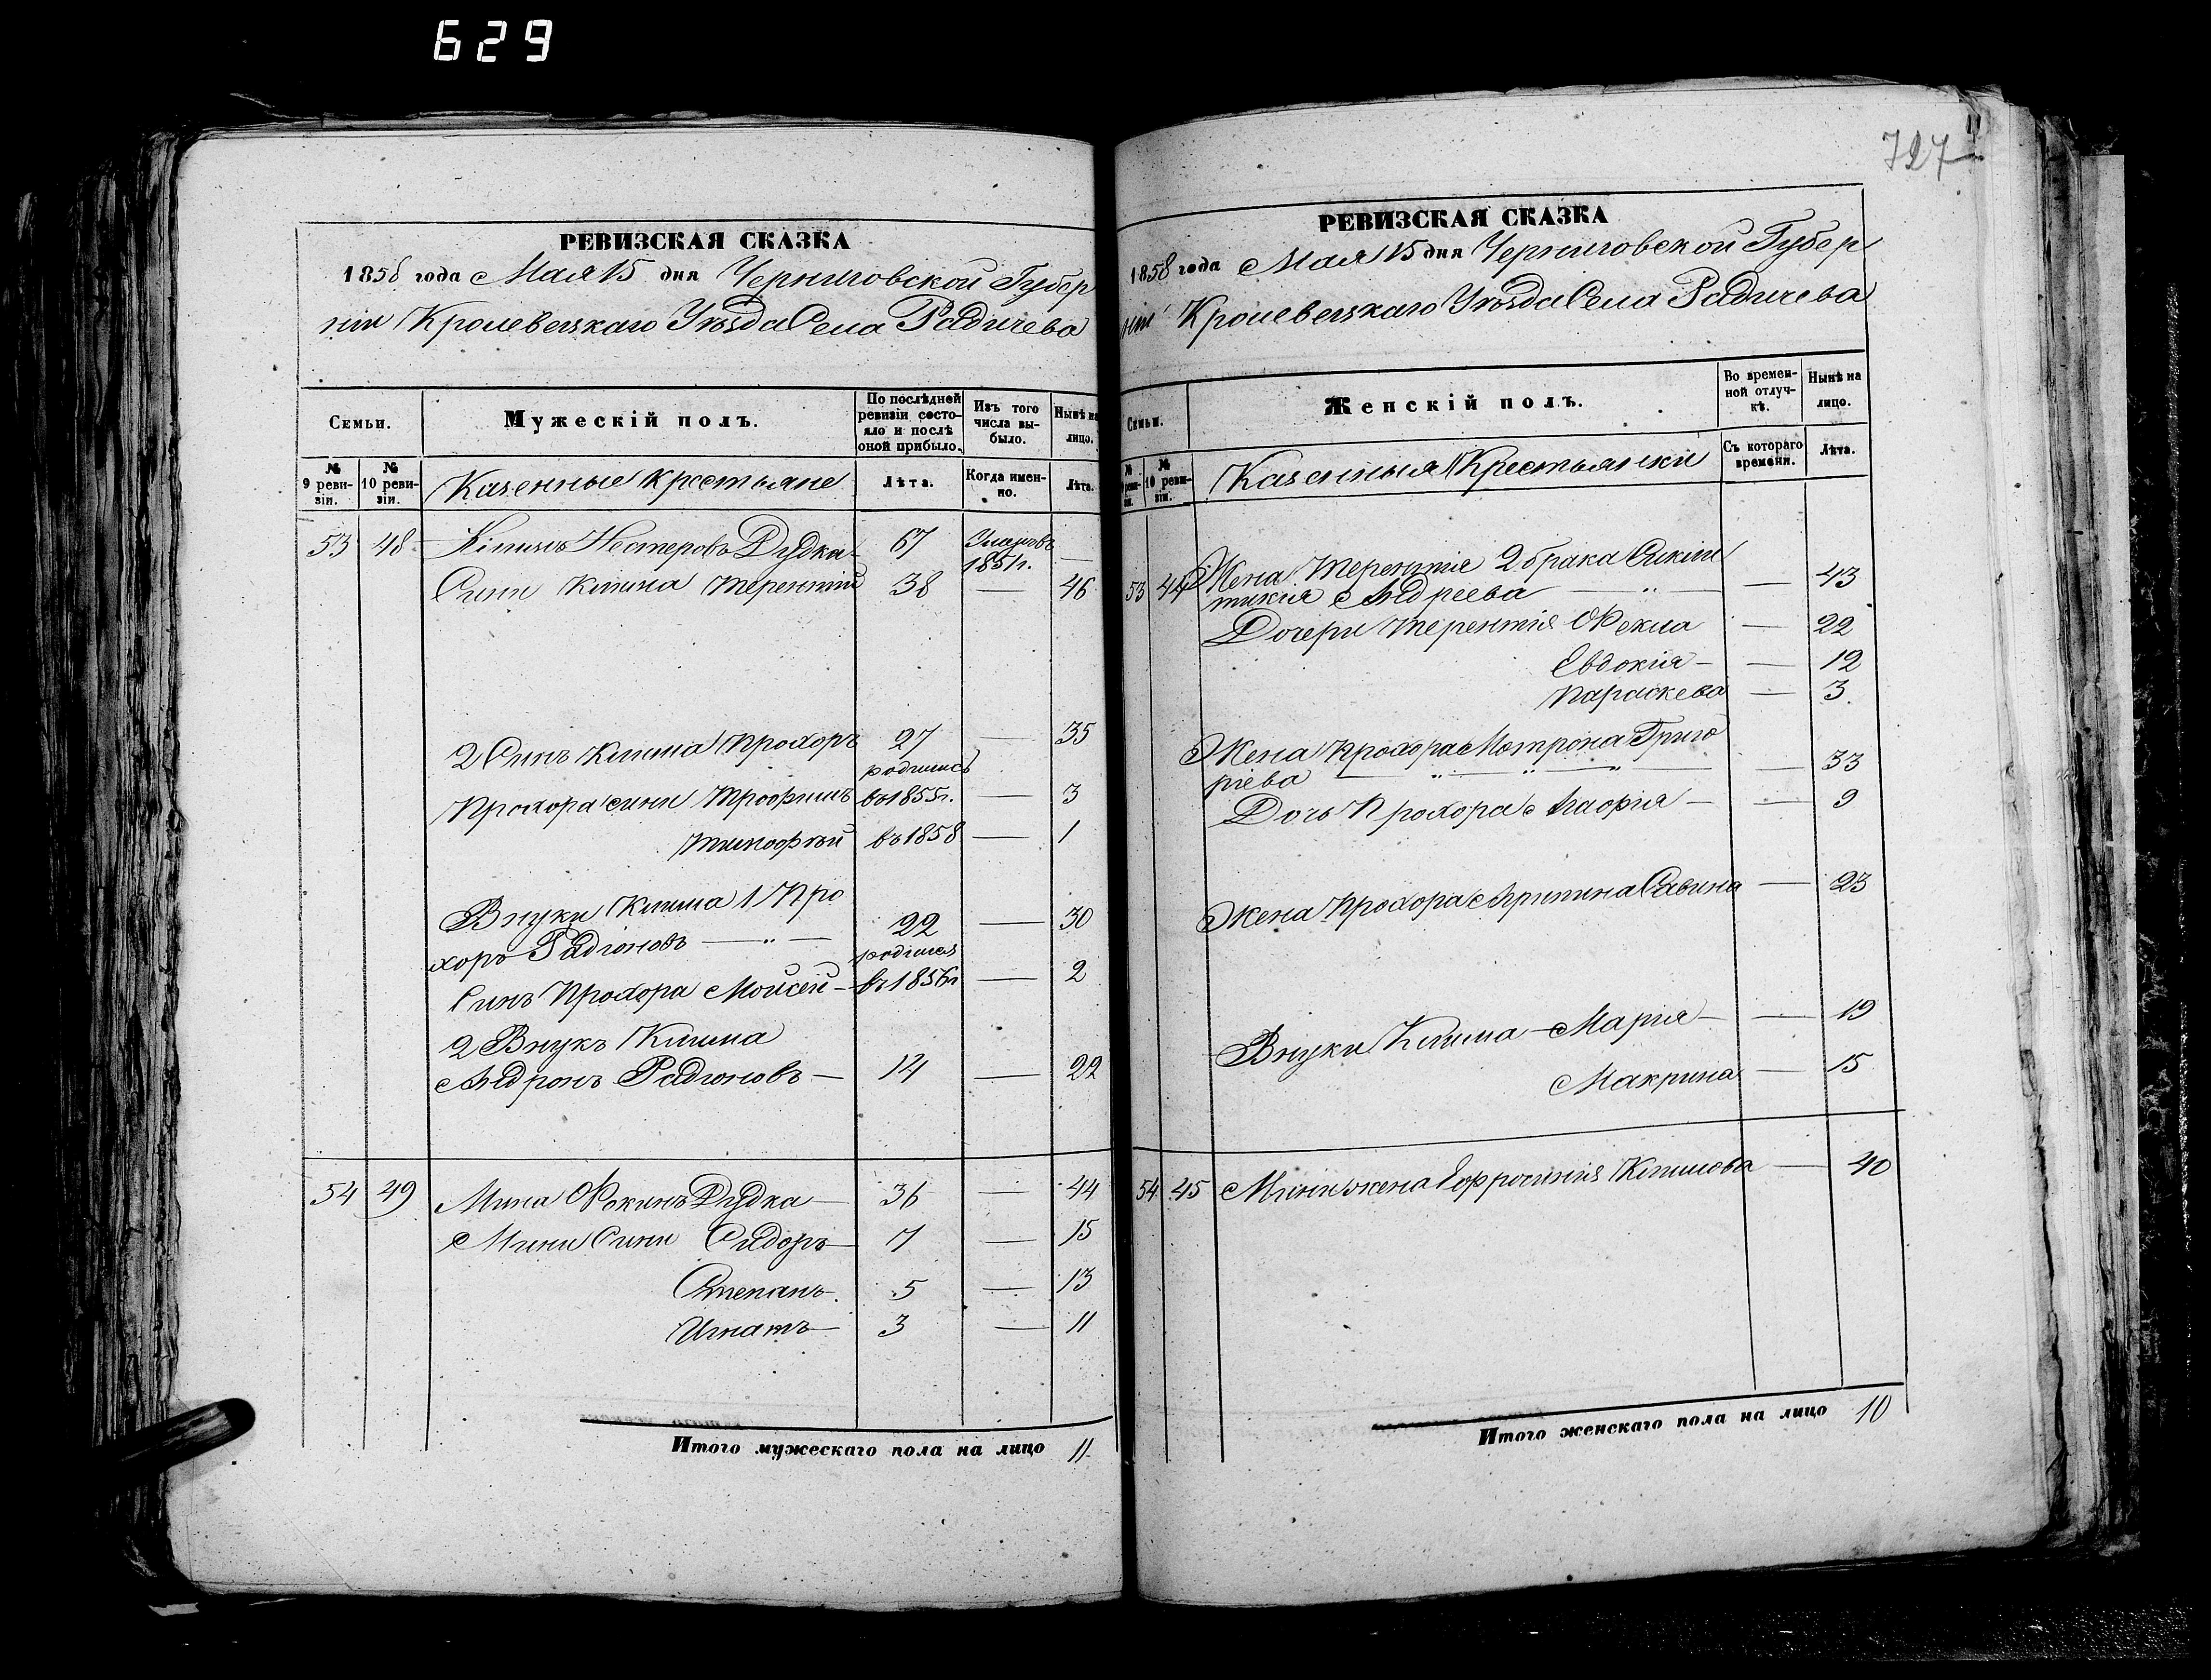 629
727
РЕВИЗСКАЯ СКАЗКА
1858 года Мая 15 дня Черниговской Губер
ніи Кролевецкаго Уѣзда Села Радичева
Семьи.
Мужескій полъ.
По послѣдней ревизіи состояло и послѣ оной прибыло.
Изъ того числа выбыло.
Нынѣ на лицо.
№ 9 ревизіи.
№ 10 ревизіи.
Казенные крестьяне
Лѣта.
Когда именно.
Лѣта.
53 48 Климъ Нестеровъ Дудка 67 Умеръ въ 1851 г. —
Сини Клима Терентій 38 — 46
2 Синъ Клима Прохоръ 27 — 35
Прохора сини Трофимъ родились въ 1855 г. — 3
Тимофѣй въ 1858 — 1
Внуки Клима 1 Про
хоръ Радіоновъ — „ — 22 — 30
Синъ Прохора Мойсей — родился въ 1856 г — 2
2 Внукъ Клима
Андронъ Радионовъ — 14 — 22
54 49 Мина Фокинъ Дудка — 36 — 44
Мини Сини Сидоръ — 7 — 15
Степанъ 5 — 13
Игнатъ — 3 — 11
Итого мужескаго пола на лицо 11
РЕВИЗСКАЯ СКАЗКА
1858 года Мая 15 дня Черниговской Губер
ніи Кролевецкаго Уѣзда Села Радичева
Семьи.
Женскій полъ.
Во временной отлучкѣ.
Нынѣ на лицо.
№ 9 ревизіи.
№ 10 ревизіи.
Казенныя Крестьянки
Съ котораго времени.
Лѣта.
53 44 Жена Терентія 2 брака
Андреева — „ — — 43
Дочери Терентія Фекла — 22
Евдокія — — 12
Параскева — 3.
Жена Прохора Мотрона Григо
ріева — „ — „ — „ — — 33
Дочь Прохора Агафия — — 9
Жена Прохора Агрипина Савина — 23
Внуки Клима — Мария — — 19
Макрина — 15
54 45 Мини жена Ефросинія Климова — 40
Итого женскаго пола на лицо 10